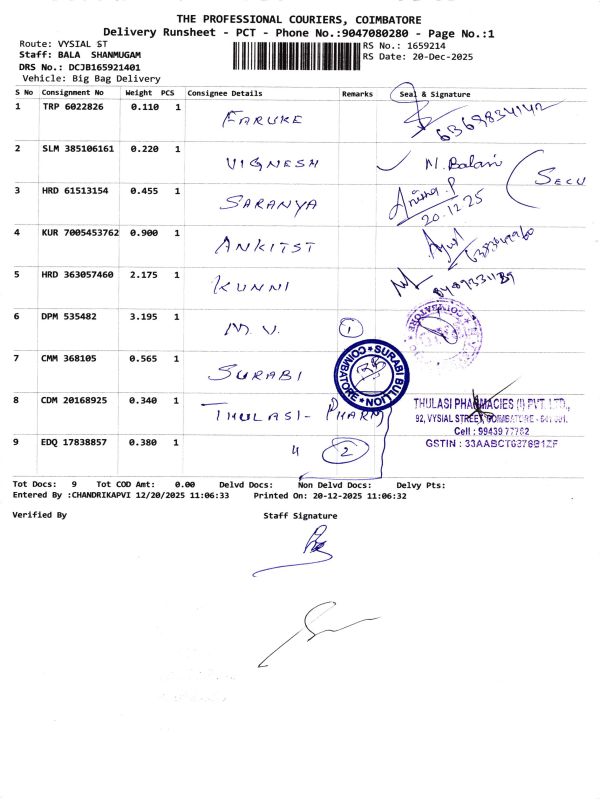 THE PROFESSIONAL COURIERS, COIMBATORE
Delivery Runsheet - PCT - Phone No.:9047080280 - Page No.:1
Route: VYSIAL ST
RS No.: 1659214
Staff: BALA SHANMUGAM
RS Date: 20-Dec-2025
DRS No.: DCJB165921401
Vehicle: Big Bag Delivery
S No Consignment No Weight PCS Consignee Details Remarks Seal & Signature
1 TRP 6022826 0.110 1 FARUKE
2 SLM 385106161 0.220 1 VIGNESH N. Balan SECU
3 HRD 61513154 0.455 1 SARANYA
20.12.25
4 KUR 7005453762 0.900 1 ANKITST
5 HRD 363057460 2.175 1 KUNNI
6 DPM 535482 3.195 1 M.V. 1
COIMBATORE
7 CMM 368105 0.565 1 SURABI
SURABI BULLION COIMBATORE
8 CDM 20168925 0.340 1 THULASI- PHARM
THULASI PHARMACIES (I) PVT. LTD.,
92, VYSIAL STREET, COIMBATORE - 641 001.
Cell : 99439 77762
9 EDQ 17838857 0.380 1 11 2
Tot Docs: 9 Tot COD Amt: 0.00 Delvd Docs: Non Delvd Docs: Delvy Pts:
Entered By :CHANDRIKAPVI 12/20/2025 11:06:33 Printed On: 20-12-2025 11:06:32
Verified By Staff Signature